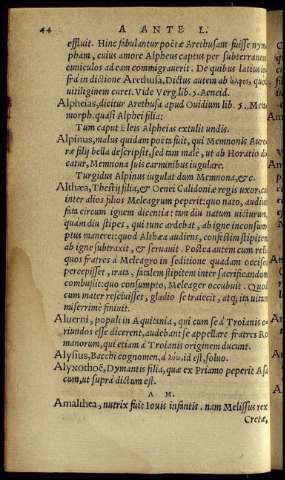 44 A ANTE L.
effluit. Hinc fabulantur poëtæ Arethusam fuisse nym
pham, cuius amore Alpheus captus per subterraneos
cuniculos ad eam commigrauerit. De quibus latius in-
fra in dictione Arethusa, Dictus autem ab quod
uitiliginem curet. Vide Verg. lib. 3. Aeneid.
Alpheias, dicitur Arethusa apud Ouidium lib. 5. Meta
morph. quasi Alphei filia:
Tum caput Eleis Alpheias extulit undis.
Alpinus, malus quidam poëta fuit, qui Memnonis Auro
ræ filij bella descripsit, sed tam male, ut ab Horatio di
catur, Memnona suis carminibus iugulare.
Turgidus Alpinus iugulat dum Memnona, &c.
Althæa, Thestij filia, & Oenei Calidoniæ regis uxor, cui
inter alios filios Meleagrum peperit: quo nato, audiens
fata circum ignem dicentia: tam diu natum uicturum,
quàm diu stipes, qui tunc ardebat, ab igne inconsum-
ptus maneret: quod Althæa audiens, confestim stipitem
ab igne subtraxit, & seruauit. Postea autem cum reli
quos fratres à Meleagro in seditione quadam occisos
percepisset, irata, facalem stipitem inter sacrificandum
combussit: quo consumpto, Meleager occubuit. Quod
cum mater resciuisset, gladio se traiecit, atq; ita uitam
miserrimè finiuit.
Aluerni, populi in Aquitania, qui cum se à Troianis o-
riundos esse dicerent, audebant se appellare fratres Ro
manorum, qui etiam à Troianis originem ducunt.
Alysius, Bacchi cognomen, à λύω, id est, soluo.
Alyxothoë, Dymantis filia, quæ ex Priamo peperit Æsa
cum, ut suprà dictum est.
A M.
Amalthea, nutrix fuit Iouis infantis. nam Melissus rex
Cretæ,